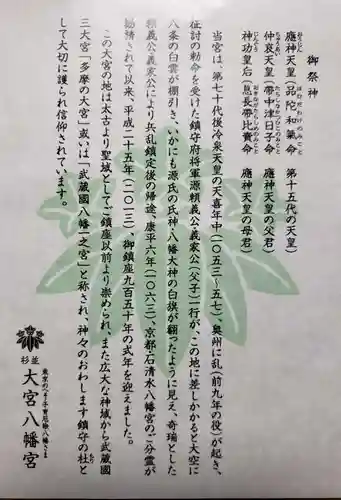 御祭神
應神天皇（品陀和氣命　第十五代の天皇）
おうじん
ほむだわけのみこと
仲哀天皇（帶中津日子命　應神天皇の父君）
ちゅうあい
たらしなかつひこのみこと
神功皇后（息長帶比賣命　應神天皇の母君）
じんぐう
おきながたらしひめのみこと
当宮は、第七十代後冷泉天皇の天喜年中（一〇五三～五七）、奥州に乱（前九年の役）が起き、
征討の勅命を受けた鎮守府将軍源頼義公義家公（父子）一行が、この地に差しかかると大空に
八条の白雲が棚引き、いかにも源氏の氏神・八幡大神の白旗が翻ったように見え、奇瑞とした
頼義公義家公により兵乱鎮定後の帰途、康平六年（一〇六三）、京都・石清水八幡宮のご分霊が
勧請されて以来、平成二十五年（二〇一三）、御鎮座九百五十年の式年を迎えました。
この大宮の地は太古より聖域としてご鎮座以前より崇められ、また広大な神域から武蔵國
三大宮「多摩の大宮」或いは「武蔵國八幡一之宮」と称され、神々のおわします鎮守の杜と
もり
して大切に護られ信仰されています。
東京のへそ 子育厄除八幡さま
杉並
大宮八幡宮